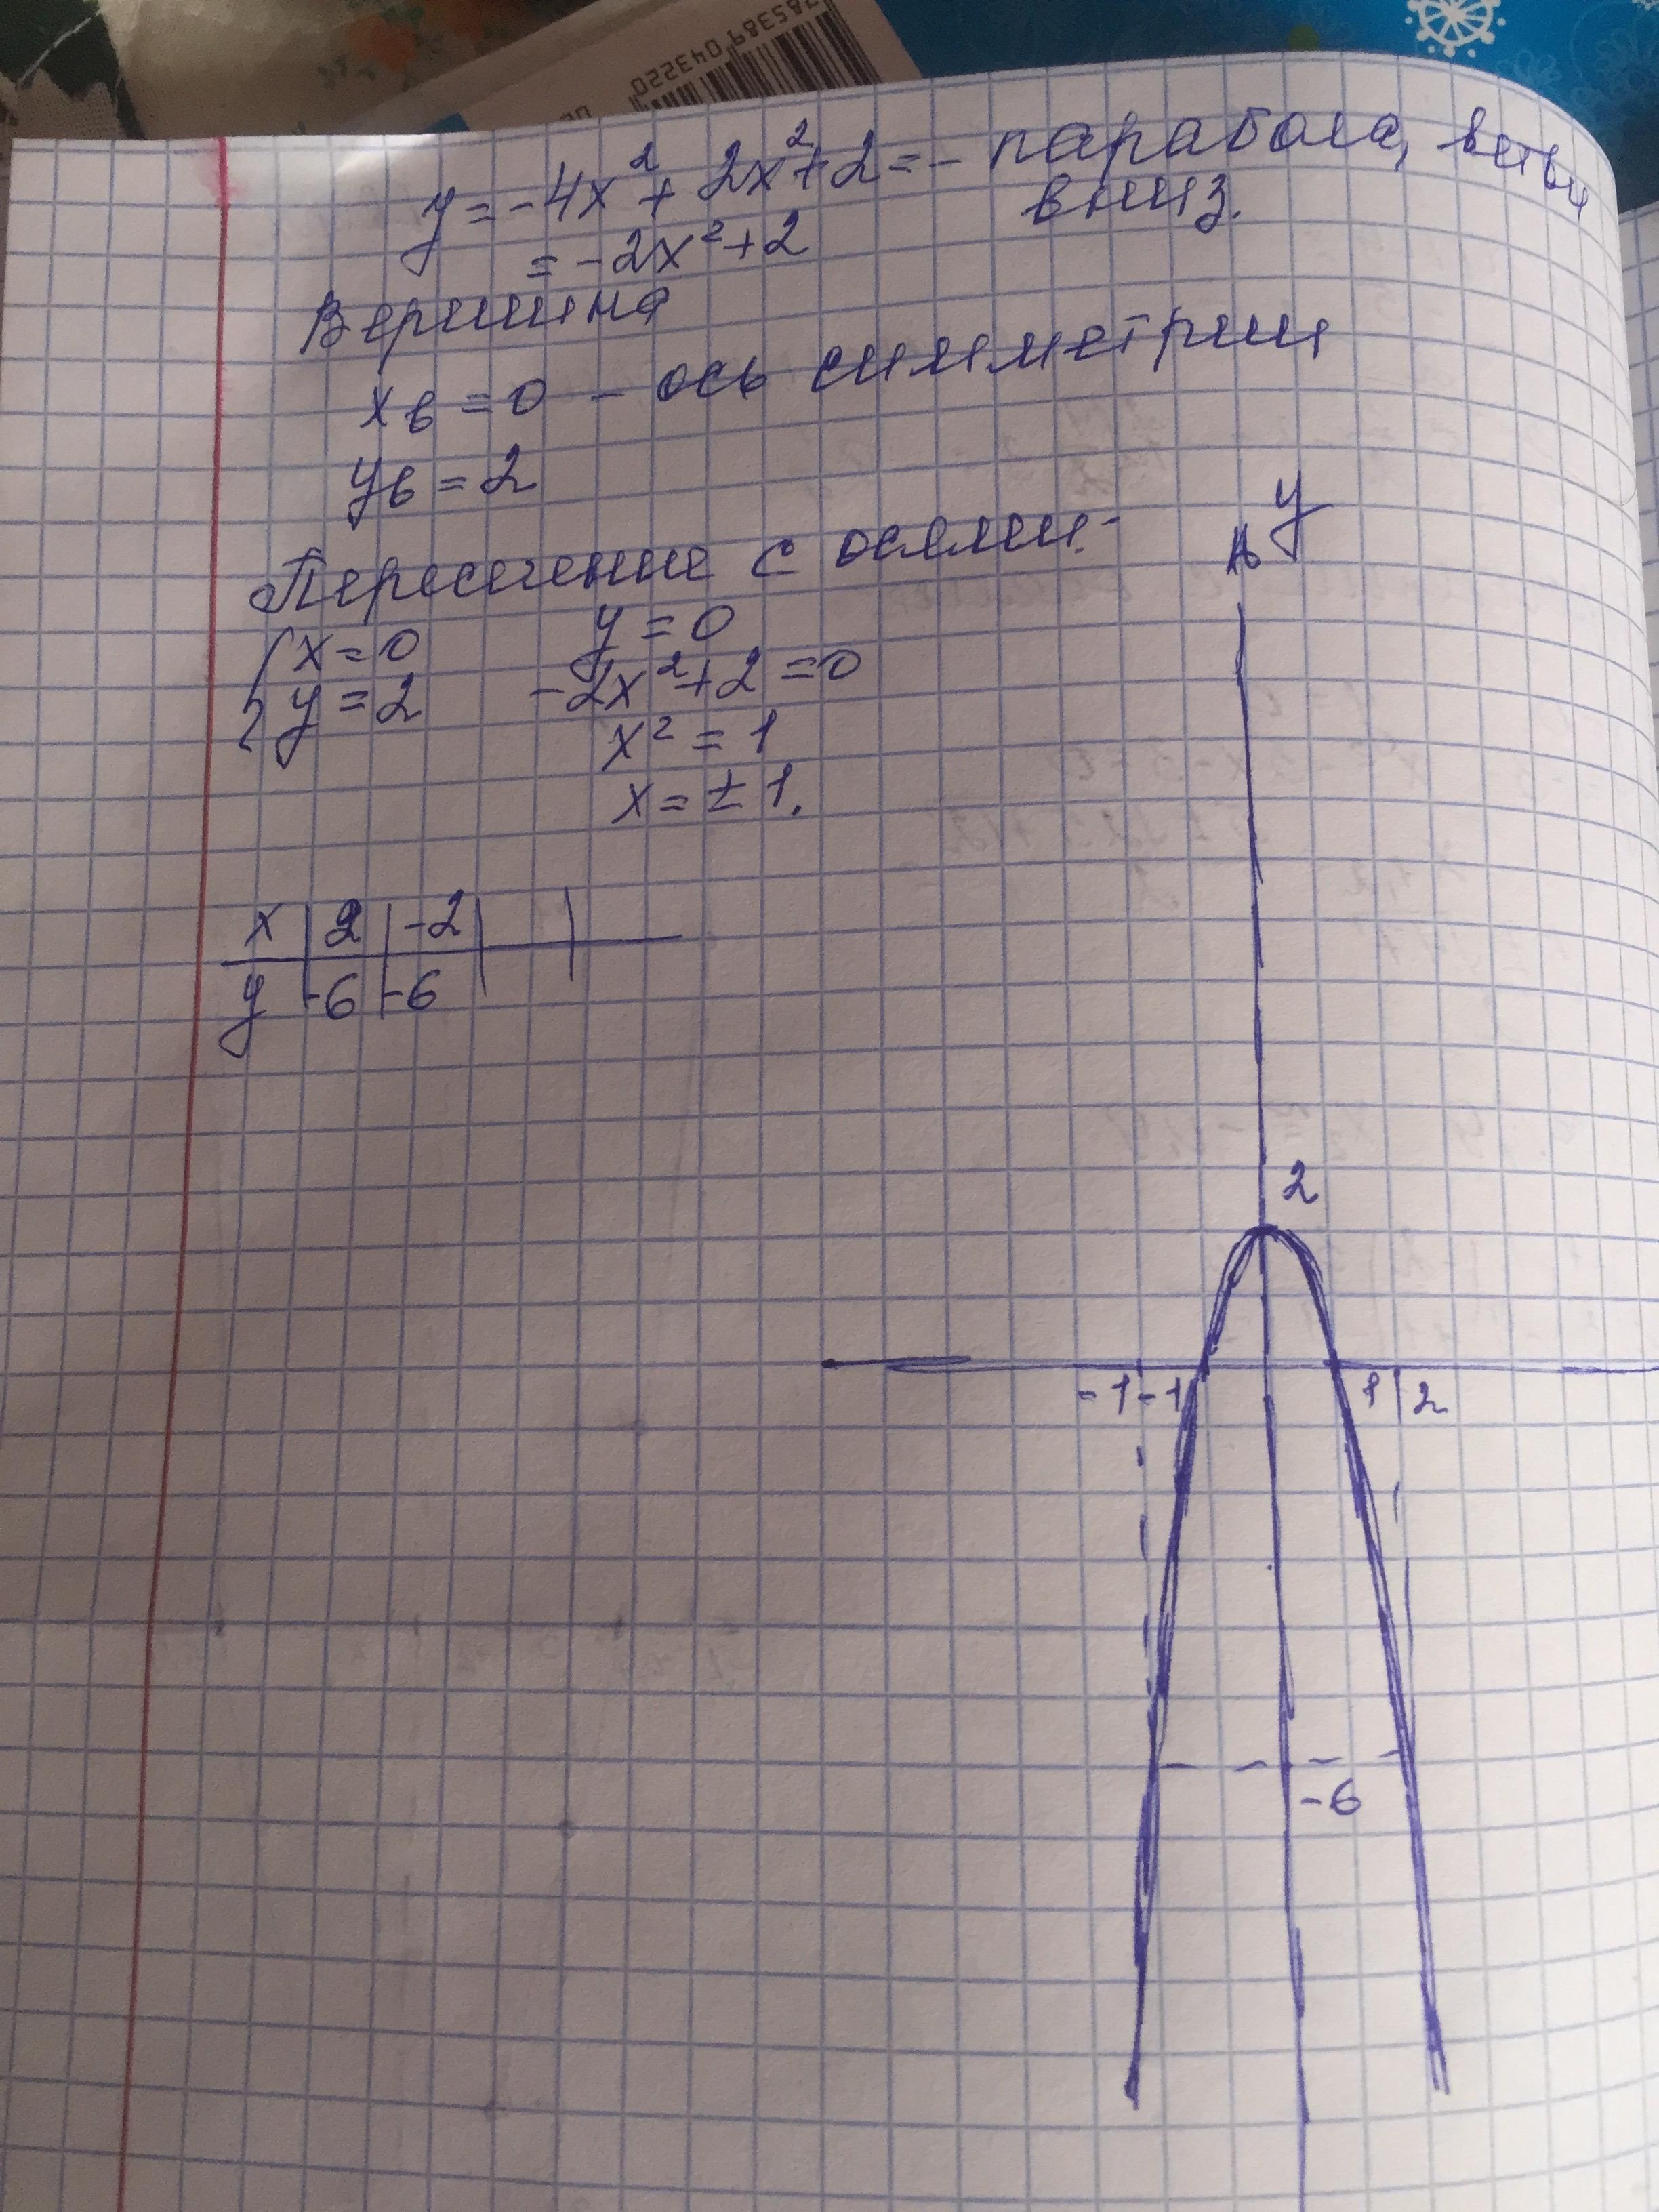 y = -4x² + 2x² + 2 = - парабола, ветви
= -2x² + 2 вниз.
Вершина
xв = 0 - ось симметрии
yв = 2
Пересечение с осями:
{ x = 0 y = 0
{ y = 2 -2x² + 2 = 0
x² = 1
x = ± 1.
x | 2 | -2 | |
y | -6 | -6 |
y
2
-1 -1 1 2
-6